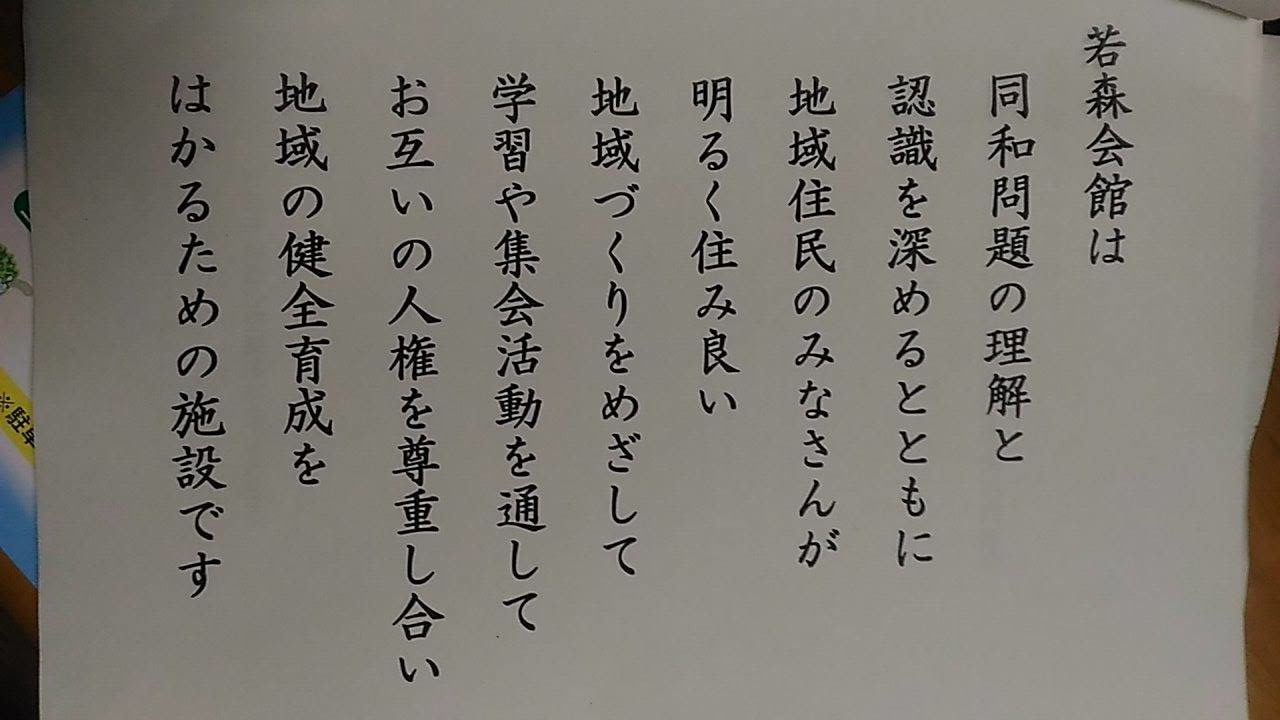 若森会館は
同和問題の理解と
認識を深めるとともに
地域住民のみなさんが
明るく住み良い
地域づくりをめざして
学習や集会活動を通して
お互いの人権を尊重し合い
地域の健全育成を
はかるための施設です
※駐車